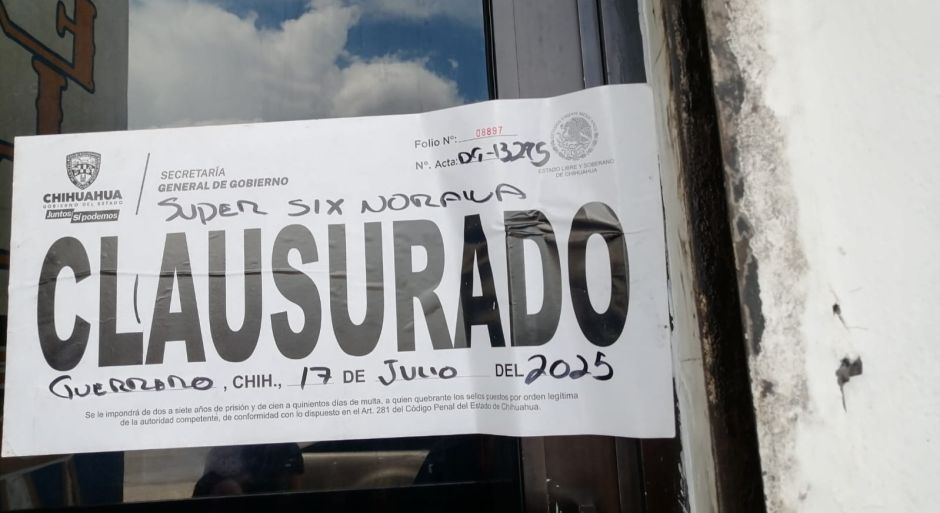 Folio Nº: 08897
Nº. Acta: DG-13295
ESTADO LIBRE Y SOBERANO
DE CHIHUAHUA
CHIHUAHUA
GOBIERNO DEL ESTADO
Juntos Sí podemos
SECRETARÍA
GENERAL DE GOBIERNO
SUPER SIX NORAWA
CLAUSURADO
GUERRERO, CHIH., 17 DE JULIO DEL 2025
Se le impondrá de dos a siete años de prisión y de cien a quinientos días de multa, a quien quebrante los sellos puestos por orden legítima
de la autoridad competente, de conformidad con lo dispuesto en el Art. 281 del Código Penal del Estado de Chihuahua.